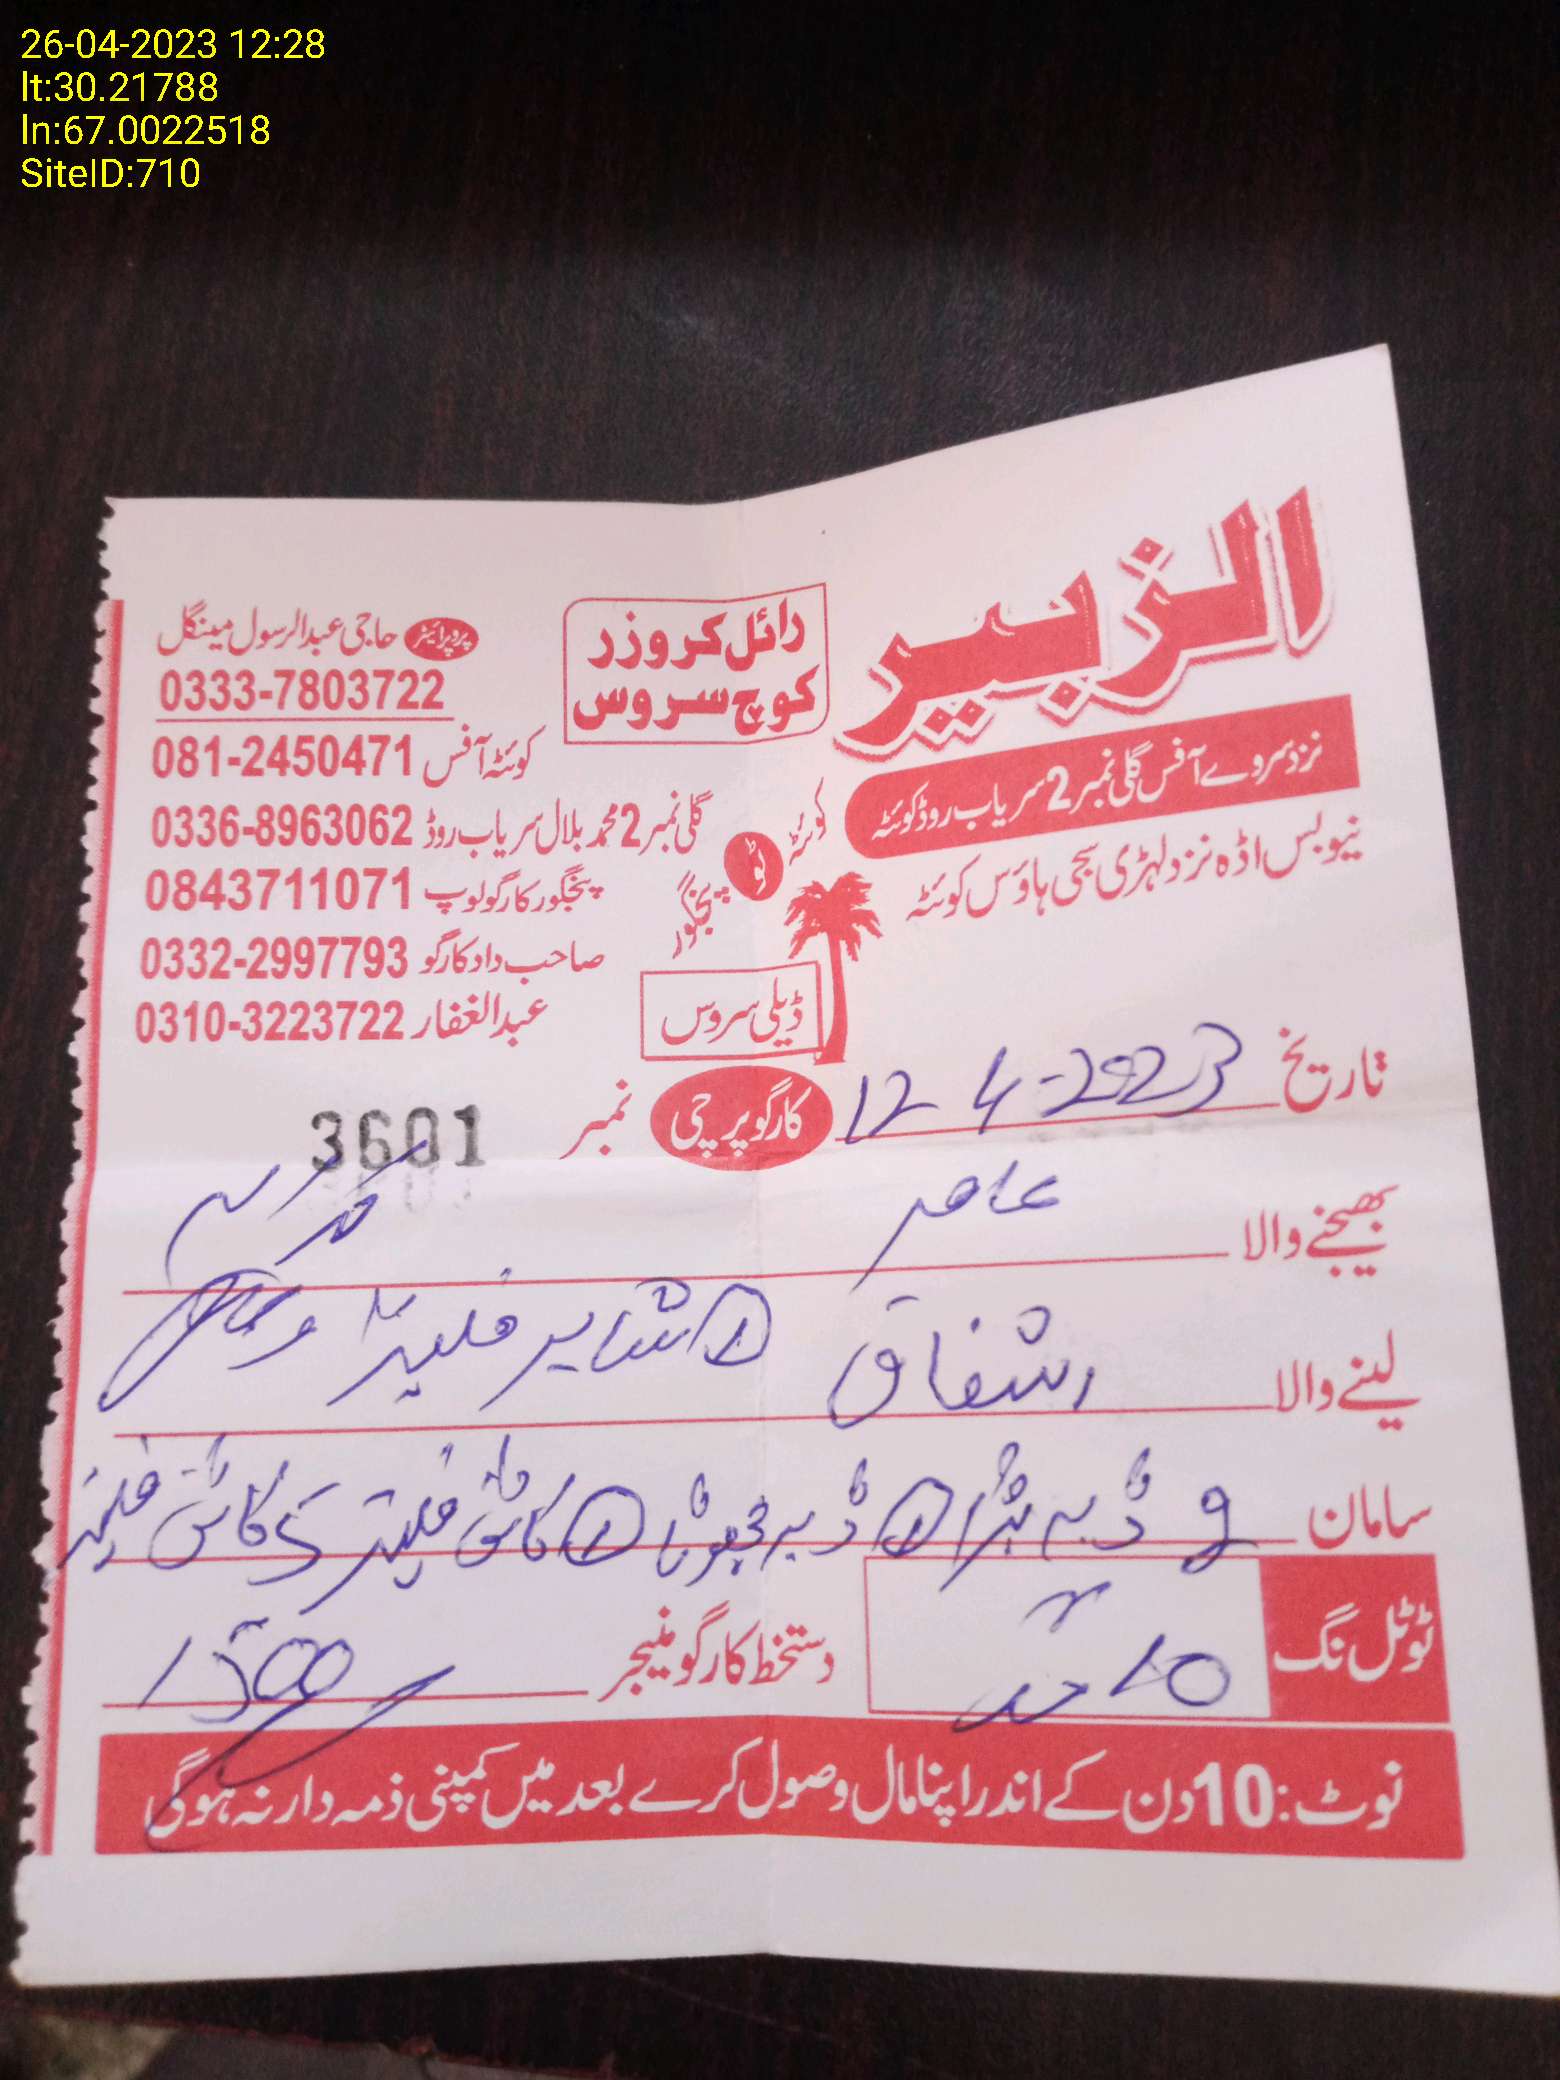 26-04-2023 12:28
lt:30.21788
ln:67.0022518
SiteID:710
الزبیر
نزد سروے آفس گلی نمبر 2 سریاب روڈ کوئٹہ
نیو بس اڈہ نزد لہڑی سجی ہاؤس کوئٹہ
رائل کروزر
کوچ سروس
کوئٹہ ٹو پنجگور
ڈیلی سروس
پروپرائیٹر حاجی عبدالرسول مینگل
0333-7803722
کوئٹہ آفس 081-2450471
گلی نمبر 2 محمد بلال سریاب روڈ 0336-8963062
پنجگور کارگو لوپ 0843711071
صاحب داد کارگو 0332-2997793
عبدالغفار 0310-3223722
تاریخ 12-4-2023 کارگو پرچی نمبر 3601
بھیجنے والا عامر
لینے والا اشفاق
سامان 9 ڈبہ بڑا 1 ڈبہ چھوٹا 1
ٹوٹل نگ 10 عدد
دستخط کارگو منیجر 1500
نوٹ: 10 دن کے اندر اپنا مال وصول کرے بعد میں کمپنی ذمہ دار نہ ہوگی